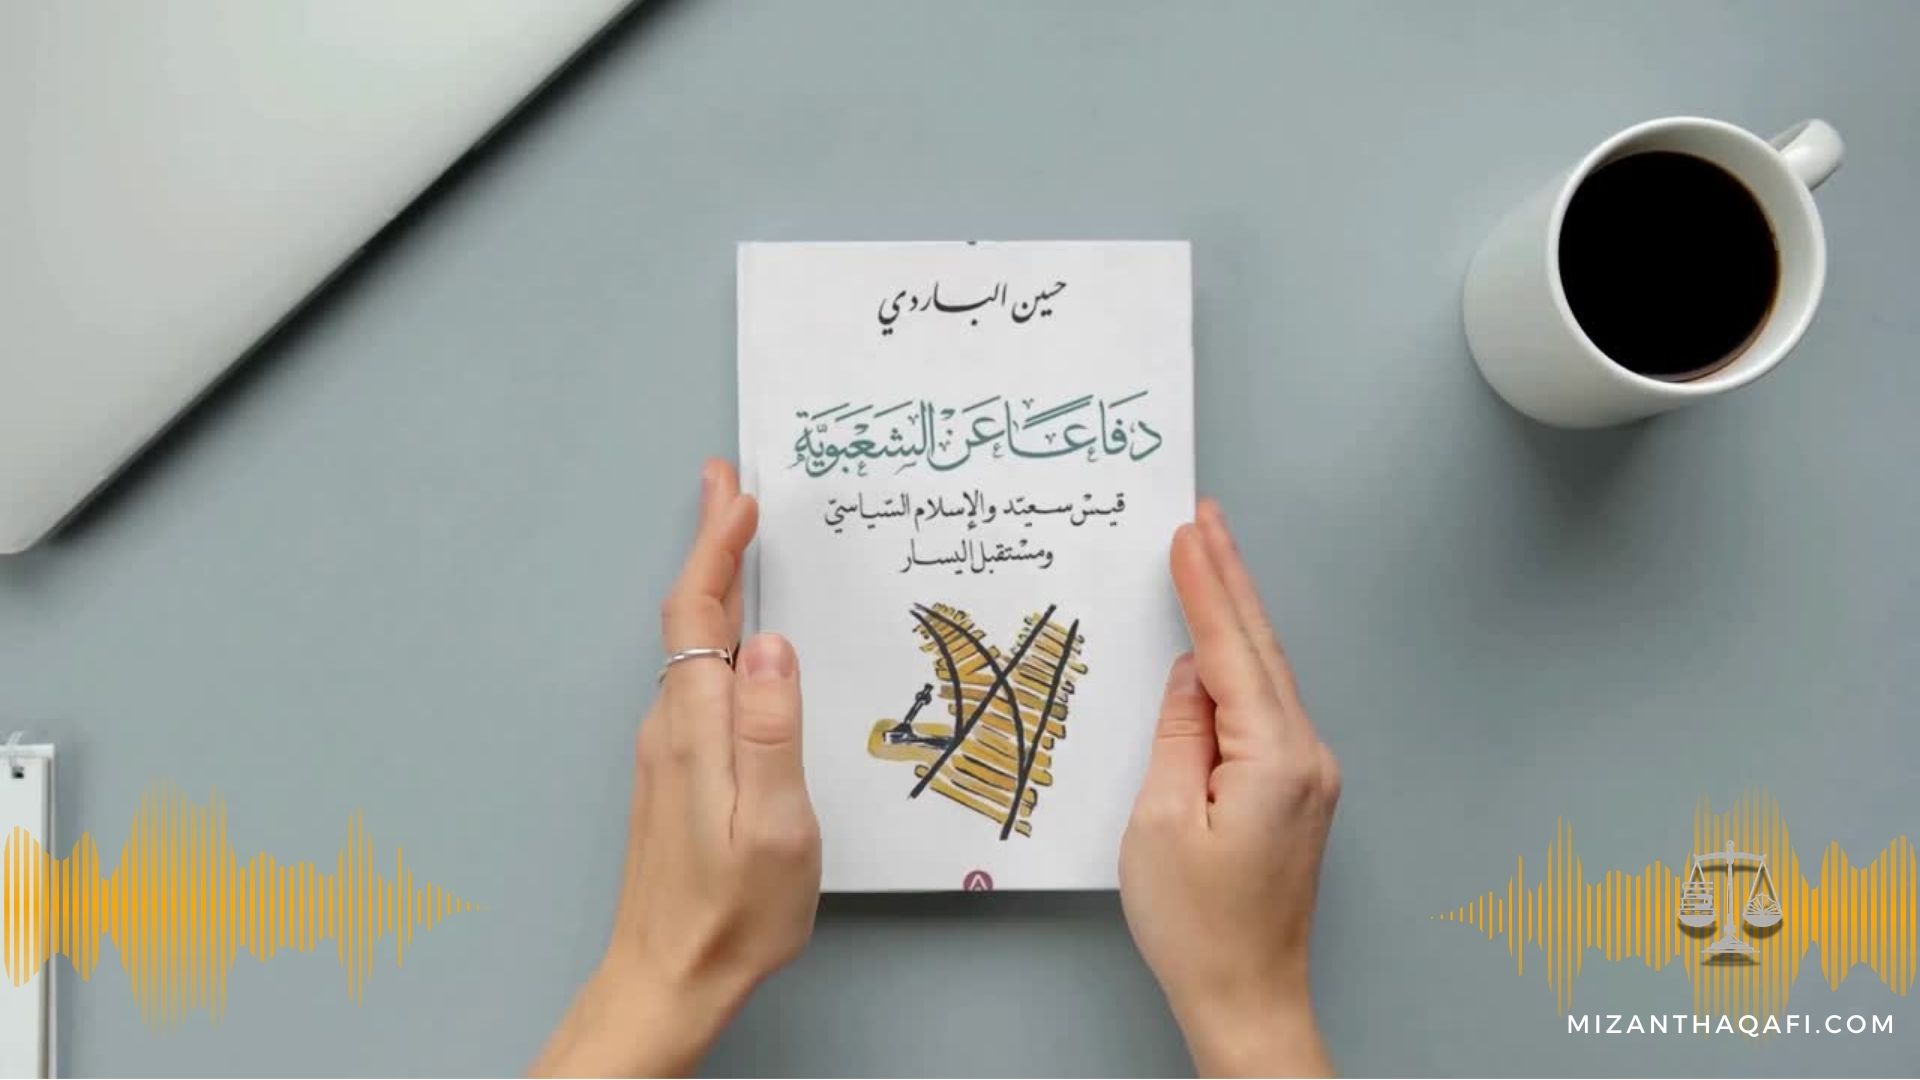 حسين الباردي
دفَاعًا عَنْ الشَعْبَويَّة
قيسْ سعيّد والإسلام السّياسيّ
ومسْتقبل اليسار
MIZANTHAQAFI.COM